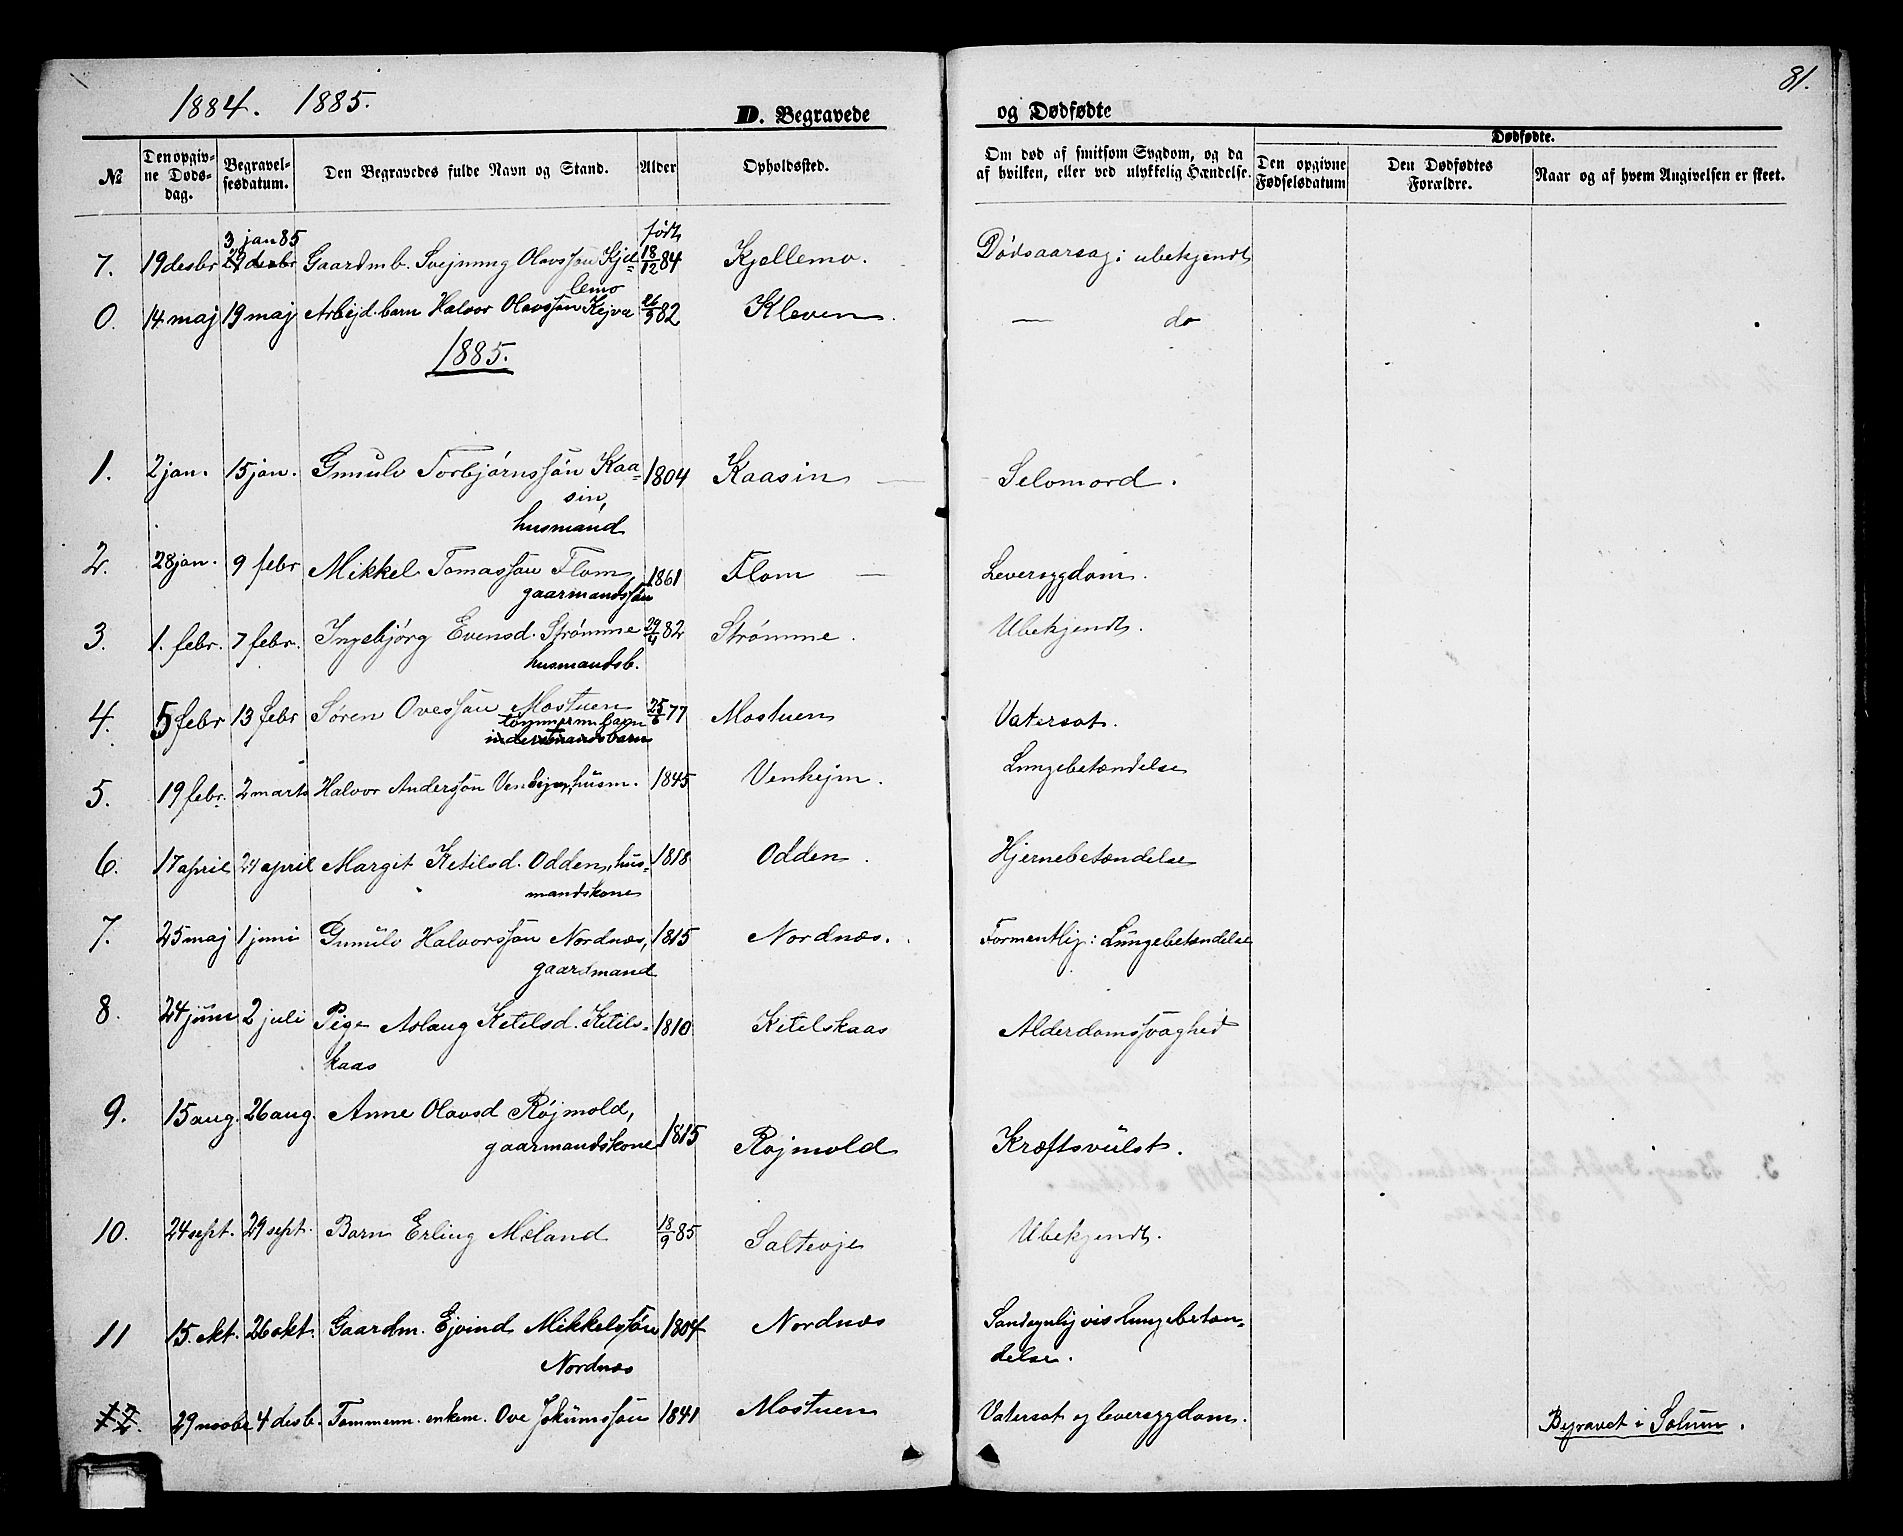 81.
1884. 1885.
D. Begravede og Dødfødte
№ Den opgivne Døds-dag. Begravelsesdatum. Den Begravedes fulde Navn og Stand. Alder Opholdssted. Om død af smitsom Sygdom, og da af hvilken, eller ved ulykkelig Hændelse. Dødfødte.
Den opgivne Fødselsdatum Den Dødfødtes Forældre. Naar og af hvem Angivelsen er skeet.
3 jan 85 født
7. 19 desbr 29 desbr Gaardmb. Svejnung Olavssøn Kjel= 18/12 84 Kjellemo. Dødsaarsag: ubekjendt
lemo
0. 14 maj 19 maj Arbejd. barn Halvor Olavssøn Kejva 26/5 82 Kleven. — do
1885.
1. 2 jan. 15 jan. Gunulv Torbjørnssøn Kaa= 1804 Kaasin — Selvmord.
sin,
husmand
2. 28 jan. 9 febr Mikkel Tomassøn Flom, 1861 Flom — Leversygdom.
gaarmandssøn
3. 1. febr. 7 febr. Ingebjørg Evensd. Strømme 29/4 82 Strømme. Ubekjendt.
husmandsb.
4. 5 febr 13 febr Søren Ovessøn Mostuen 25/6 77 Mostuen Vatersot.
tømmerm. barn
inderstmandsbarn
5. 19 febr. 2 marts Halvor Anderssøn Venhejm, husm. 1845 Venhejm. Lungebetændelse
6. 17 april 24 april Margit Ketilsd. Odden, hus- 1818 Odden. Hjernebetændelse
mandskone
7. 25 maj 1 juni Gunulv Halvorssøn Nordnæs, 1815 Nordnæs. Formentlig: Lungebetændelse
gaardmand
8. 24 juni 2 juli Pige Aslaug Ketilsd. Ketils- 1810 Ketelskaas Alderdomssvaghed
kaas
9. 15 aug. 26 aug. Anne Olavsd Røjmold, 1815 Røjmold Kræftsvulst.
gaarmandskone
10. 24 sept. 29 sept. Barn Erling Mæland 18/9 85 Saltevje Ubekjendt.
11 15. okt. 26 okt. Gaardm. Ejvind Mikkelssøn 1804 Nordnæs Sandsynligvis lungebetæn-
Nordnæs delse.
12. 29 novbr 4 desb. Tømmerm. enkem. Ove Jokumssøn 1841 Mostuen Vatersot og leversygdom. Begravet i Solum.